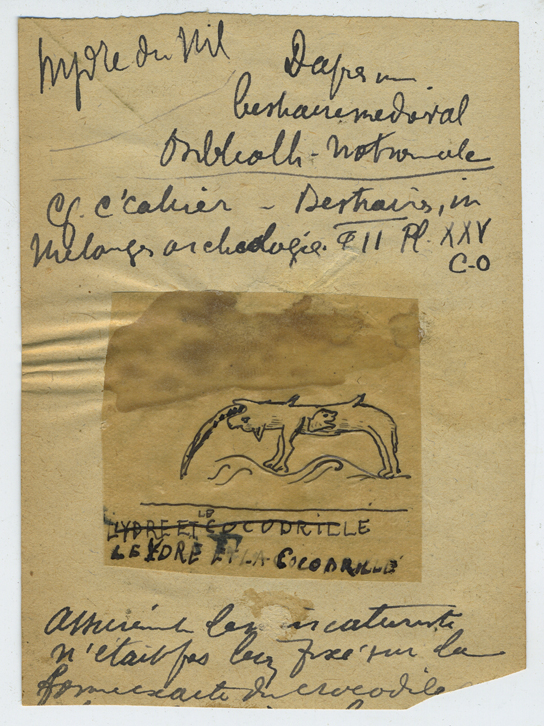 hydre du Nil
D'après un
bestiaire médiéval
Biblioth. Nationale
Cf. C. Cahier - Bestiaires, in
Mélanges archéologie. T II Pl. XXV
C-O
LE
LYDRE ET COCODRILLE
LE YDRE ET LA COCODRILLE
Assurément le
n'était pas bien fixé sur la
forme exacte du crocodile